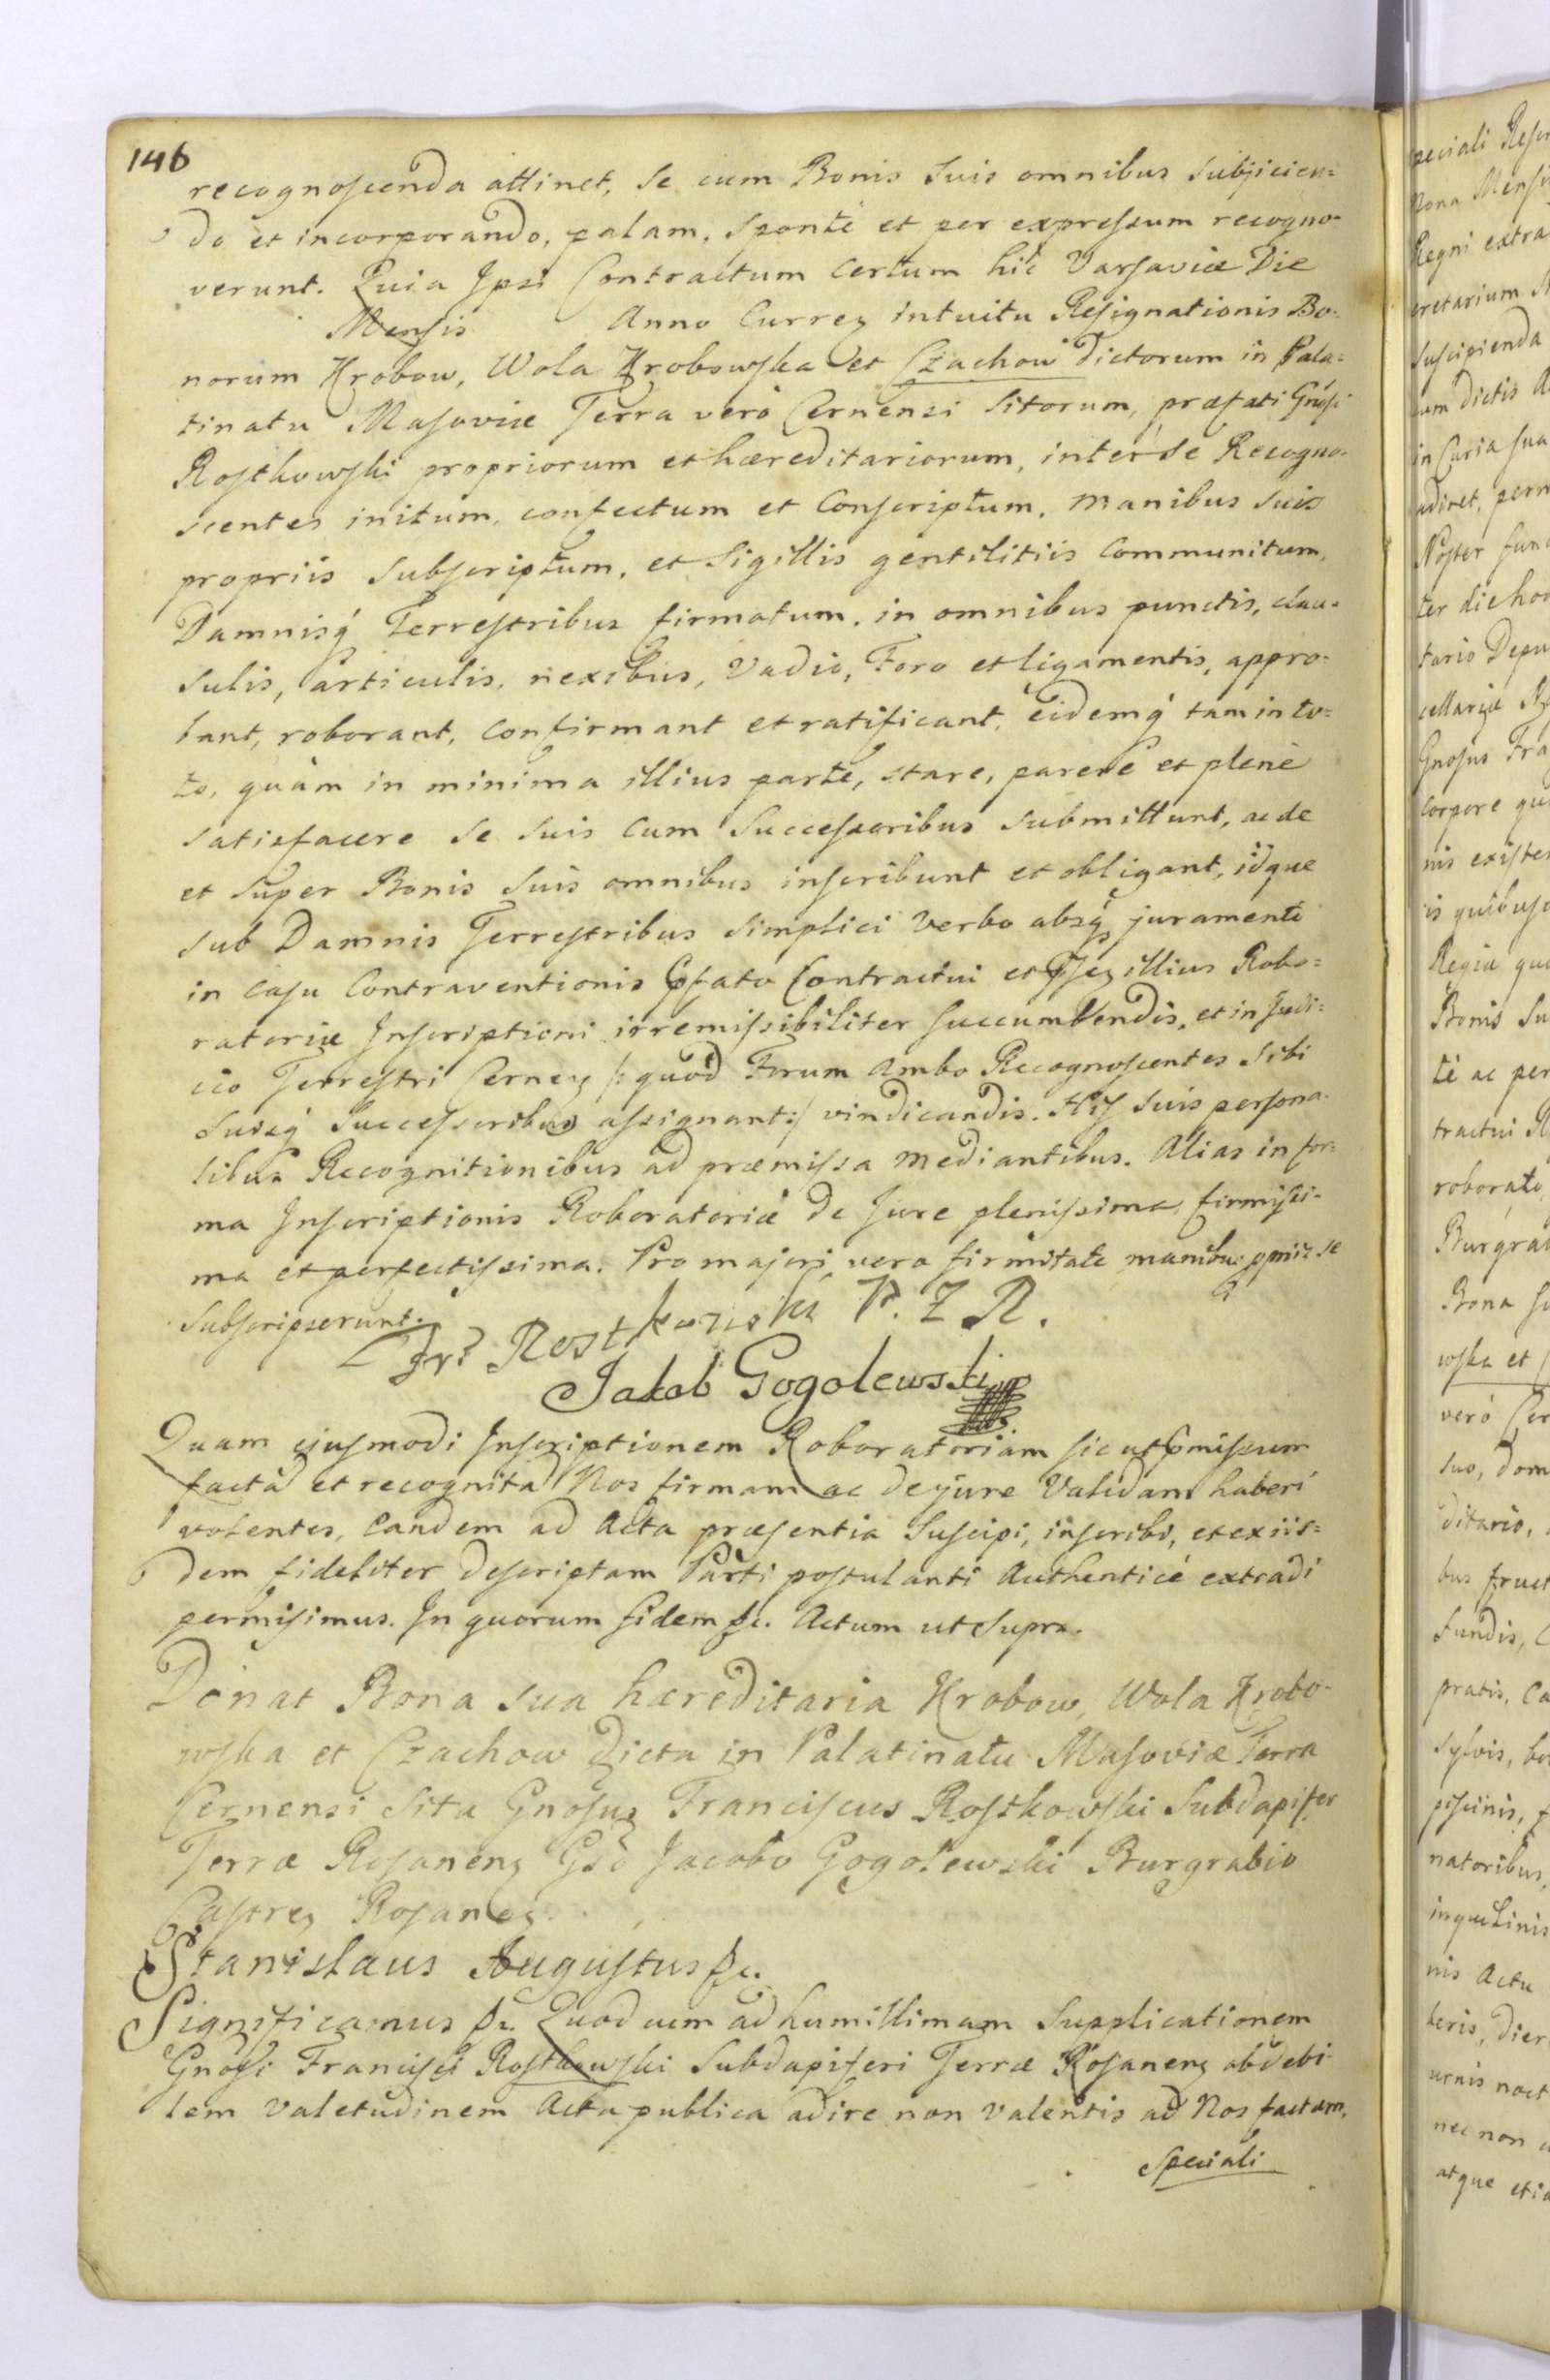 146
recognoscenda attinet, se cum Bonis suis omnibus subjicien=
do et incorporando, palam, sponte et per expressum recogno-
verunt. Quia Ipsi Contractum certum hic Varsaviæ Die
Mensis Anno Curren intuitu Resignationis Bo-
norum Hrobow, Wola Hrobowska et Czachow dictorum in Pala=
tinatu Masoviæ Terra verò Cernensi sitorum, præfati Gnosi
Rostkowski propriorum et hæreditariorum, inter se Recogno-
scentes initum, confectum et Conscriptum, manibus suis
propriis subscriptum, et Sigillis gentilitiis communitum,
Damnisq Terrestribus firmatum, in omnibus punctis, clau-
sulis, articulis, nexibus, Vadio, Foro et ligamentis, appro-
bant, roborant, confirmant et ratificant, eidemq tam in to=
to, quàm in minima illius parte, stare, parere et plenè
satisfacere se suis cum Successoribus submittunt, ac de
et super Bonis suis omnibus inscribunt et obligant, idque
sub Damnis Terrestribus simplici verbo absq juramenti
in casu Contraventionis pfato Contractui et illius Robo=
ratoriæ Inscriptioni irremissibiliter succumbendis, et in Judi=
cio Terrestri Cernen /: quod Forum ambo Recognoscentes sibi
suisq Successoribus assignant :/ vindicandis. His suis persona-
libus Recognitionibus ad præmissa mediantibus. Alias in for=
ma Inscriptionis Roboratoriæ de Jure plenissima, firmissi-
ma et perfectissima. Pro majori vero firmitate manibus se
subscripserunt.
Rostkowski P. Z. R.
Jakob Gogolewski
Quam ejusmodi Inscriptionem Roboratoriam sic ut pmissum
facta et recognita Nos firmam ac de jure Validam haberi
volentes, eandem ad Acta præsentia suscipi, inscribi, et ex iis=
dem fideliter descriptam Parti postulanti Authenticè extradi
permisimus. In quorum fidem &c. Actum ut supra.
Donat Bona sua hæreditaria Hrobow, Wola Hrobo-
wska et Czachow dicta in Palatinatu Masoviæ Terra
Cernensi sita Gnosus Franciscus Rostkowski Subdapifer
Terræ Rosanen Gso Jacobo Gogolewski Burgrabio
Castren Rosanen.
Stanislaus Augustus &c.
Significamus &c. Quod cum ad humillimam Supplicationem
Gnosi Francisci Rostkowski Subdapiferi Terræ Rosanen ob debi
lem valetudinem Acta publica adire non valentis ad Nos factam,
Speciali